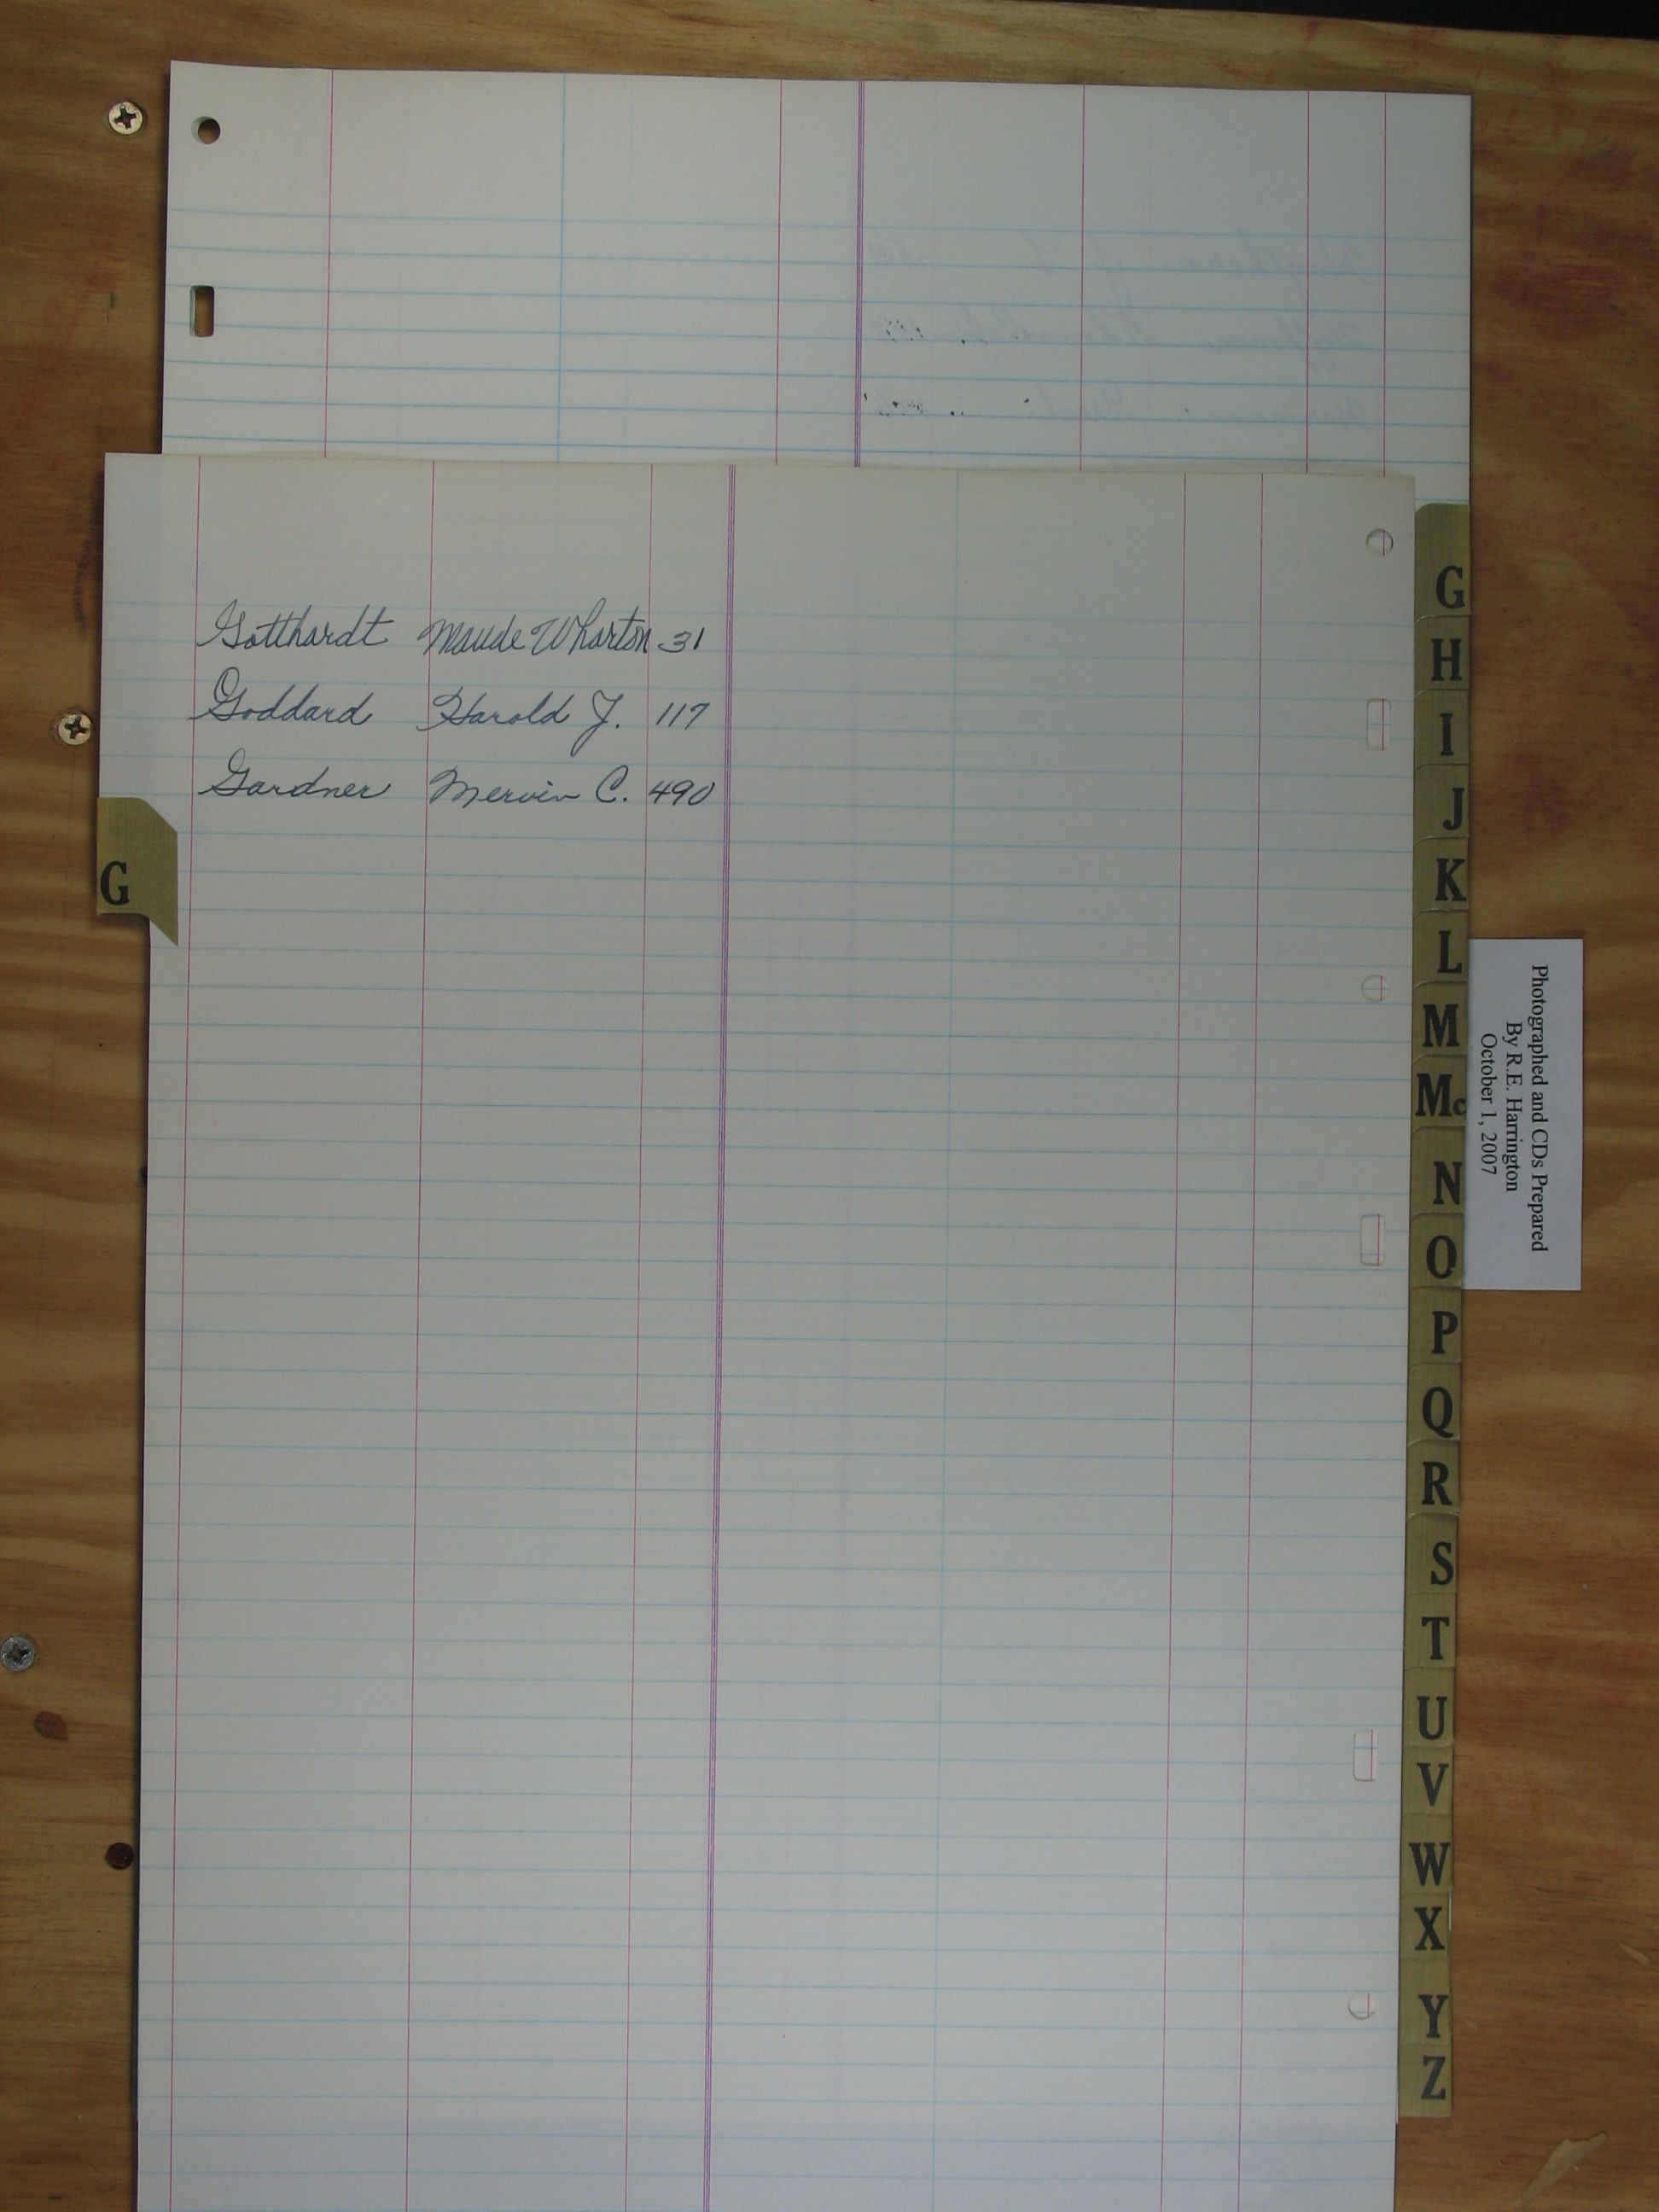 Gotthardt Maude Wharton 31
Goddard Harold J. 117
Gardner Mervin C. 490
G
G
H
I
J
K
L
M
Mc
N
O
P
Q
R
S
T
U
V
W
X
Y
Z
Photographed and CDs Prepared
By R.E. Harrington
October 1, 2007